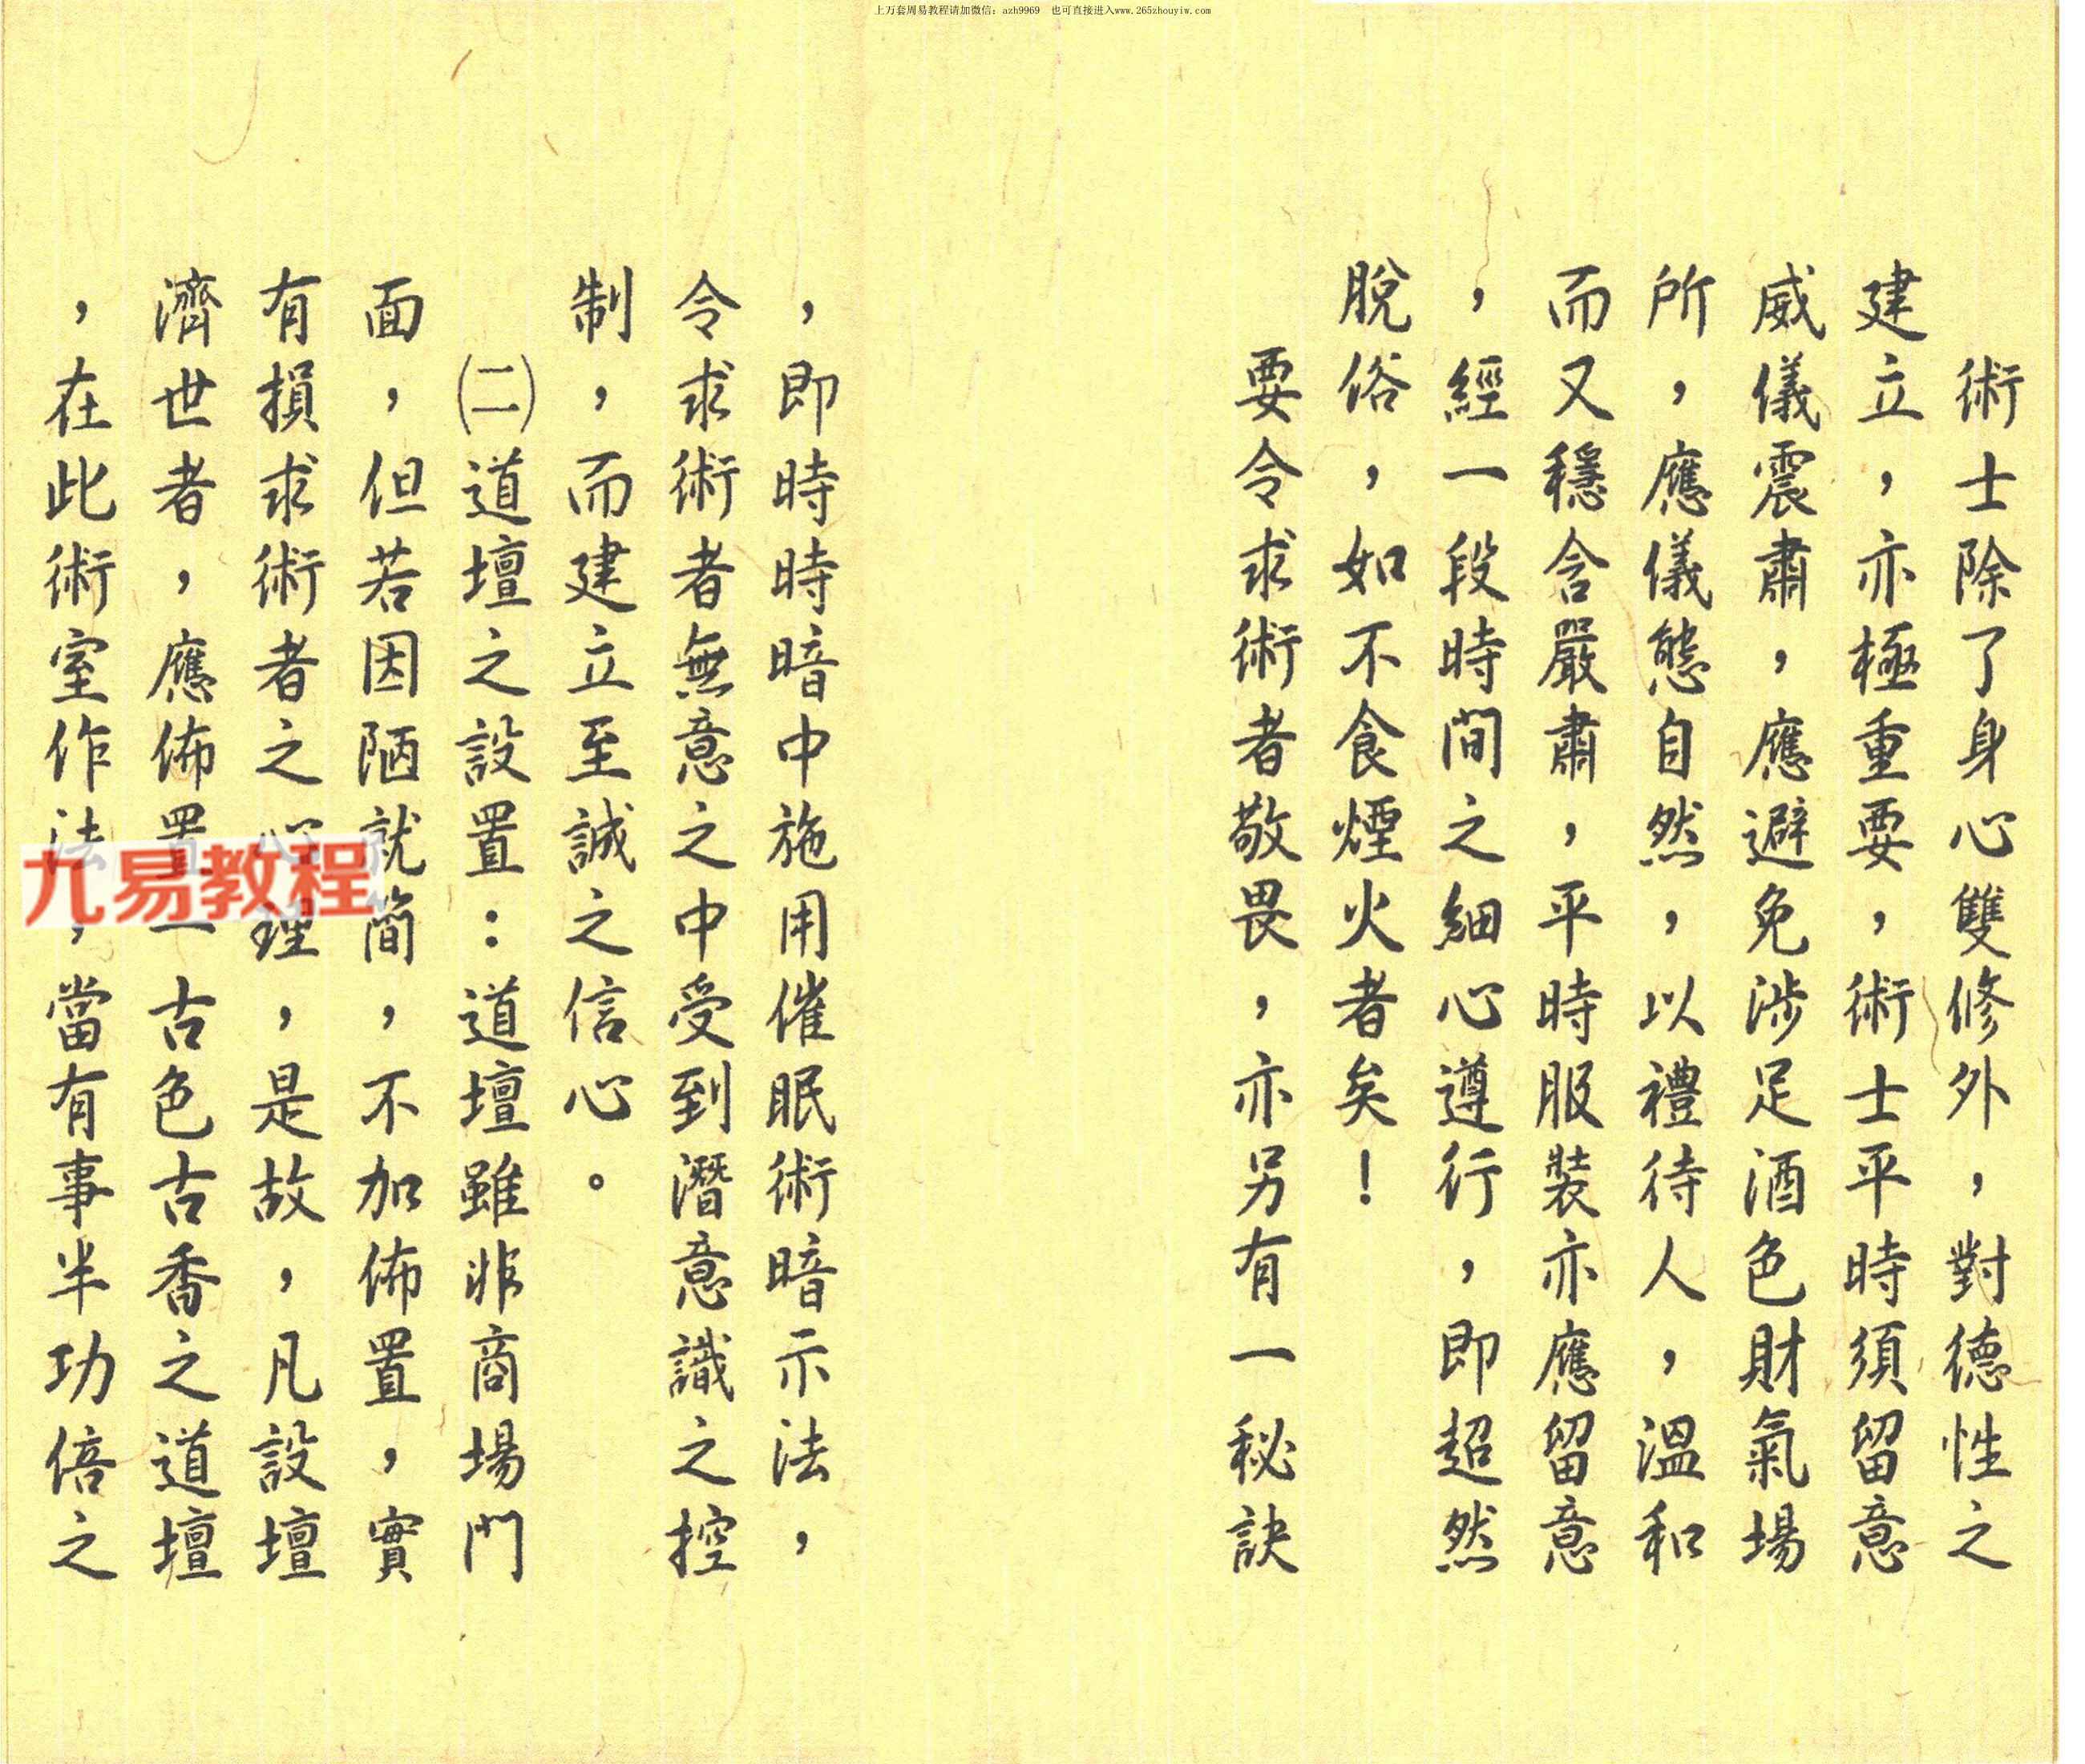 上万套周易教程请加微信：azh9969　也可直接进入www.265zhouyiw.com
術士除了身心雙修外，對德性之
建立，亦極重要，術士平時須留意
威儀震肅，應避免涉足酒色財氣場
所，應儀態自然，以禮待人，溫和
而又穩含嚴肅，平時服裝亦應留意
，經一段時間之細心遵行，即超然
脫俗，如不食煙火者矣！
要令求術者敬畏，亦另有一秘訣
，即時時暗中施用催眠術暗示法，
令求術者無意之中受到潛意識之控
制，而建立至誠之信心。
㈡道壇之設置：道壇雖非商場門
面，但若因陋就簡，不加佈置，實
有損求術者之心理，是故，凡設壇
濟世者，應佈置一古色古香之道壇
，在此術室作法，當有事半功倍之
九易教程